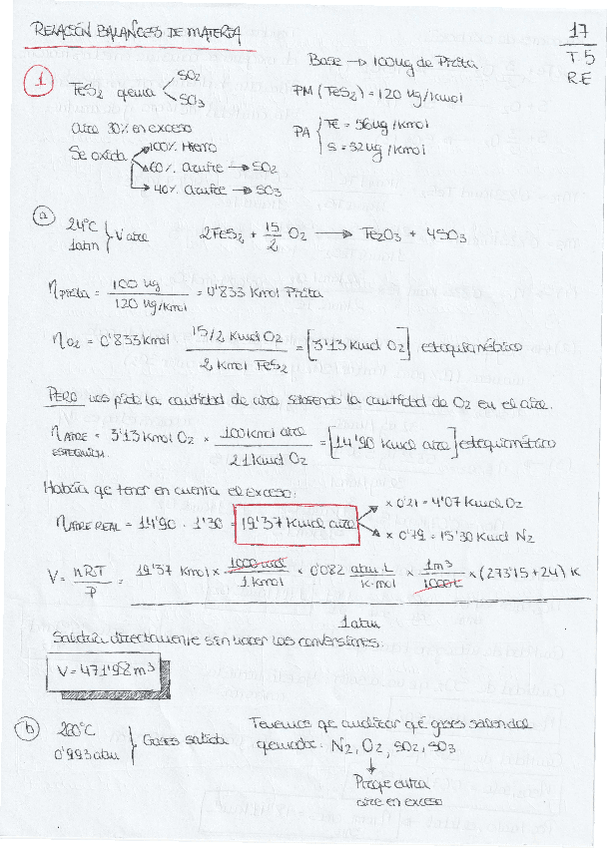 RELACIÓN BALANCES DE MATERIA
17
T5
R.E
1
FeS2 quema
SO2
SO3
Aire 30% en exceso
Se oxida
100% Hierro
60% Azufre → SO2
40% Azufre → SO3
Base → 100 kg de Pirita
PM (FeS2) = 120 kg/kmol
PA
Fe = 56 kg/kmol
S = 32 kg/kmol
a
24°C
1 atm
V aire
2FeS2 + 15/2 O2 → Fe2O3 + 4SO3
n pirita = 100 kg / 120 kg/kmol = 0'833 Kmol Pirita
n O2 = 0'833 kmol 15/2 Kmol O2 / 2 Kmol FeS2 = [3'13 Kmol O2] estequiométrico
PERO nos pide la cantidad de aire, sabiendo la cantidad de O2 en el aire.
n AIRE ESTEQUIOM. = 3'13 Kmol O2 × 100 Kmol aire / 21 Kmol O2 = [14'90 Kmol aire] estequiométrico
Habría qe tener en cuenta el exceso:
n AIRE REAL = 14'90 · 1'30 = 19'37 Kmol aire
× 0'21 = 4'07 Kmol O2
× 0'79 = 15'30 Kmol N2
V = nRT / P = 19'37 Kmol × 1000 mol / 1 Kmol × 0'082 atm·L / K·mol × 1m3 / 1000L × (273'15 + 24) K
1 atm
Saldría directamente sin hacer las conversiones.
V = 471'98 m3
b
280°C
0'993 atm
Gases salida
Tenemos qe analizar qé gases salen del
quemador: N2, O2, SO2, SO3
Porqe entra
aire en exceso